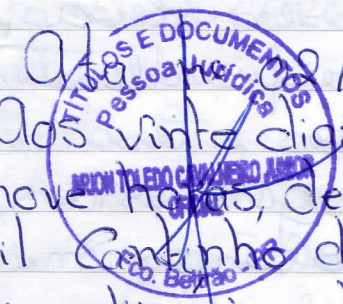 Ata nº 02/
Aos vinte dias
nove horas, de
il Cantinho d
TÍTULOS E DOCUMENTOS
Pessoa Jurídica
ARION TOLEDO CAVALHEIRO JUNIOR
OFICIAL
Fco. Beltrão - PR